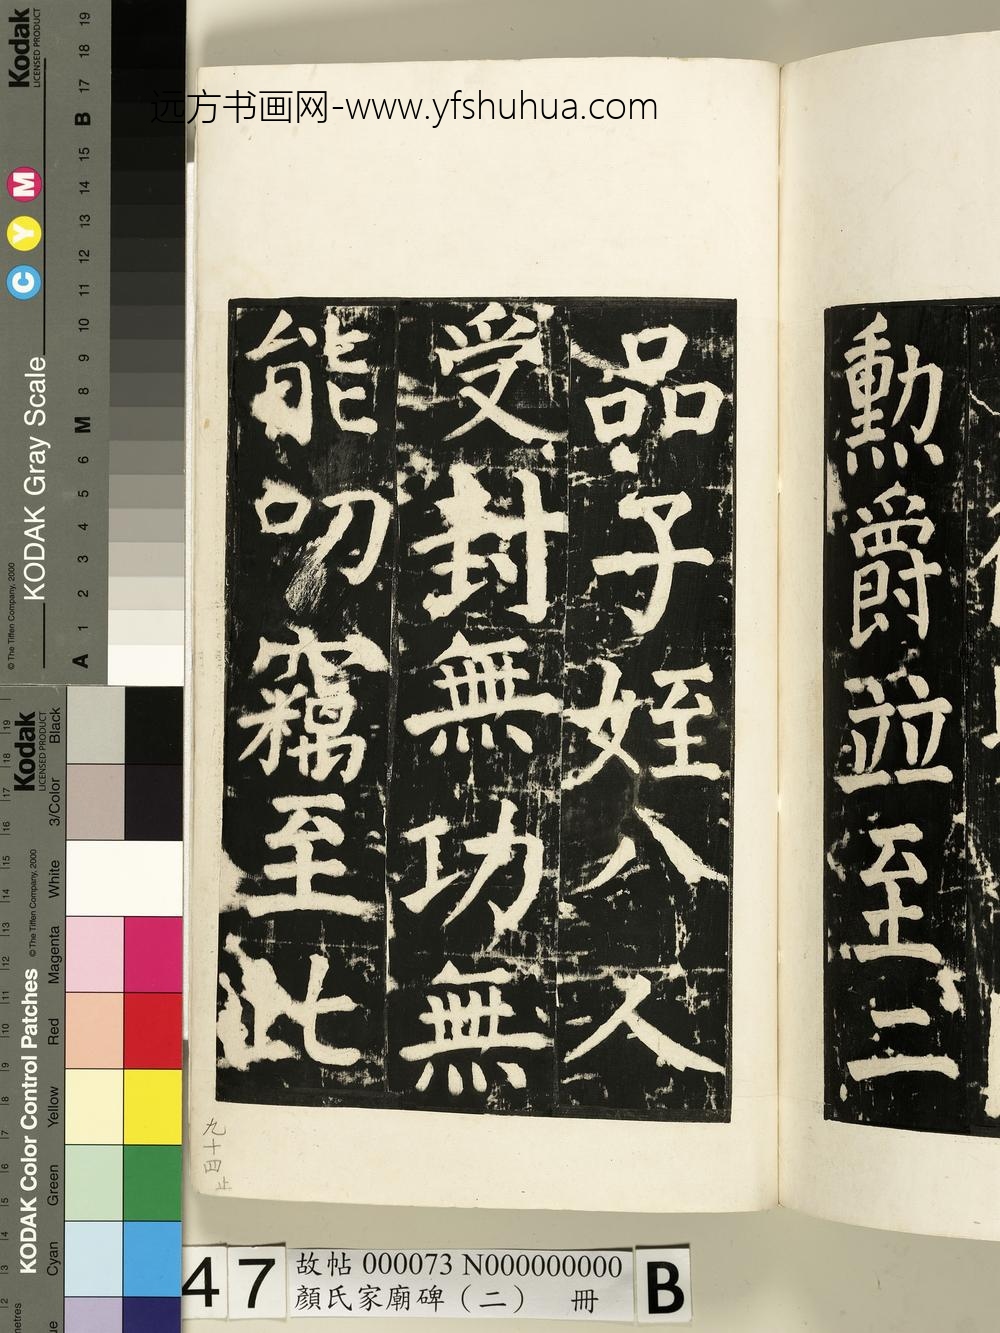 远方书画网-www.yfshuhua.com
勳爵並至二
品子姪八人
受封無功無
能叨竊至此
九十四止
47
故帖 000073 N000000000
顏氏家廟碑（二） 冊
B
Kodak
LICENSED PRODUCT
C Y M
KODAK Gray Scale
© The Tiffen Company, 2000
A 1 2 3 4 5 6 M 8 9 10 11 12 13 14 15 B 17 18 19
Kodak
LICENSED PRODUCT
KODAK Color Control Patches
© The Tiffen Company, 2000
Black
3/Color
White
Magenta
Red
Yellow
Green
Cyan
2 3 4 5 6 7 8 9 10 11 12 13 14 15 16 17 18 19